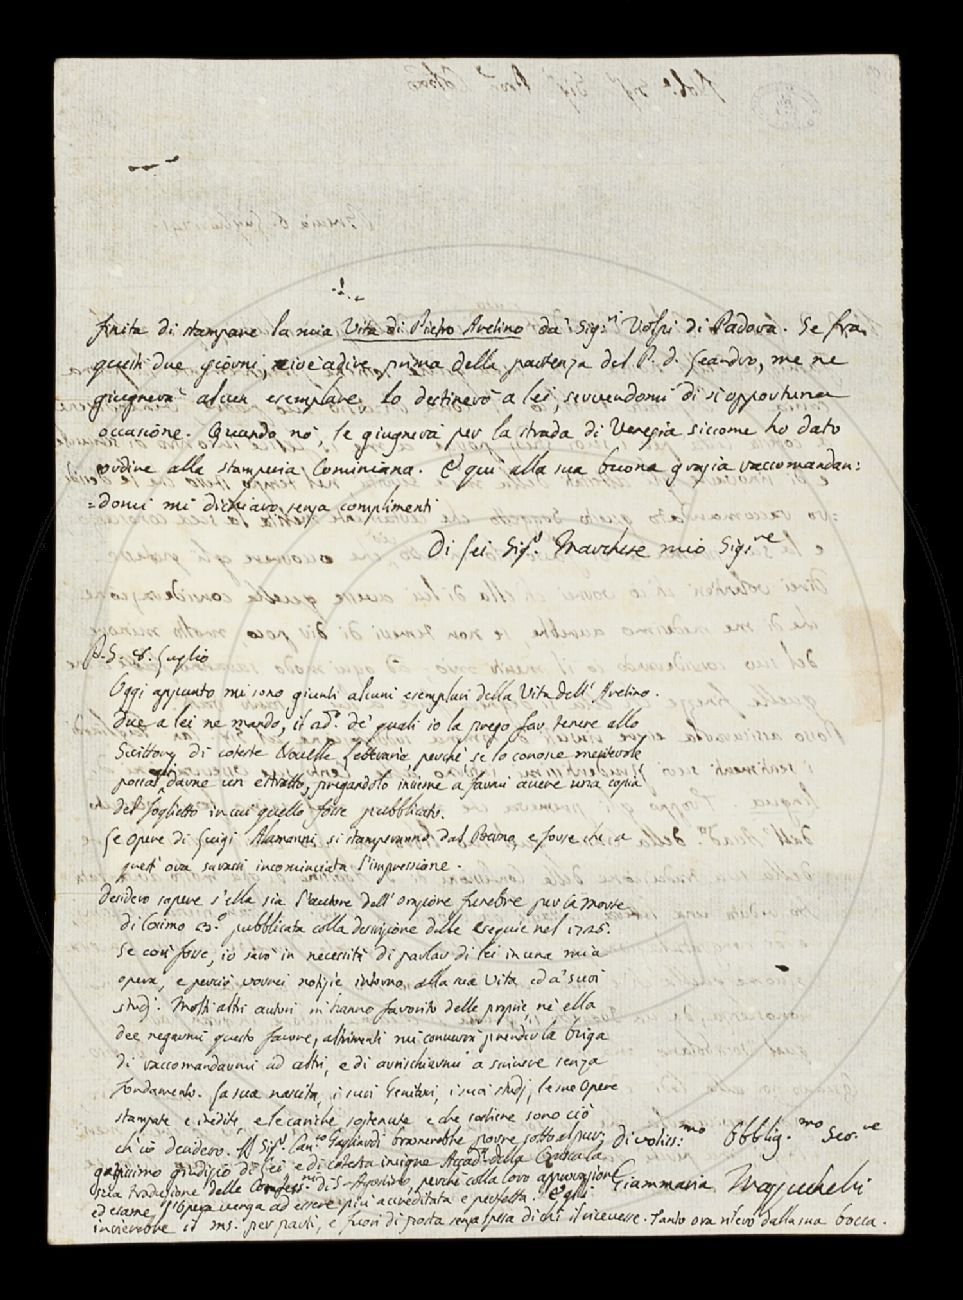 finita di stampare la mia Vita di Pietro Aretino da' Sig:ri Volpi di Padova. Se fra
questi due giorni, cioè a dire prima della partenza del P. D. Leandro, me ne
giugnerà alcun esemplare lo destinerò a lei, servendomi di sì opportuna
occasione. Quando nò, le giugnerà per la strada di Venezia siccome ho dato
ordine alla stamperia Cominiana. E quì alla sua buona grazia raccomandan:
=domi mi dichiaro senza complimenti
Di Lei Sig:r Marchese mio Sig:re
P.S. 8. Luglio
Oggi appunto mi sono giunti alcuni esemplari della Vita dell' Aretino.
Due a lei ne mando, il 2do de' quali io la prego far tenere allo
Scrittore di coteste Novelle Letterarie perchè se lo conosce meritevole
possa darne un estratto, pregandolo insieme a farmi avere una copia
del foglietto in cui quello fosse pubblicato.
Le Opere di Luigi Alamanni si stamperanno dal e forse che a
quest' ora sarassi incominciata l'impressione.
Desidero sapere s'ella sia l'autore dell' orazione funebre per la morte
di Cosimo pubblicata colla descrizione delle esequie nel 1725.
Se così fosse, io sarò in necessità di parlar di lei in una mia
opera, e perciò vorrei notizie intorno alla sua vita ed a' suoi
studj. Molti altri autori m'hanno favorito delle proprie, nè ella
dee negarmi questo favore, altrimenti mi converrà prendere la briga
di raccomandarmi ad altri, e di arrischiarmi a scrivere senza
fondamento. La sua nascita, i suoi Genitori, i suoi studj, le sue Opere
stampate e inedite, e le cariche sostenute e che sostiene sono ciò
ch'io desidero. Il Sig:r Can:co Gagliardi bramerebbe porre sotto al
giudizio di Lei e di cotesta insigne Accad:a della Crusca la
sua traduzione delle Confess:ni di S. Agostino, perchè colla loro approvazione
ed esame l'opera venga ad essere più accreditata e perfetta. Egli
invierebbe il ms. per parti, e fuori di posta senza spesa di chi il ricevesse. Tanto ora rilevo dalla sua bocca.
Divotiss:mo Obblig.mo Ser:re
Giammaria Mazzuchelli